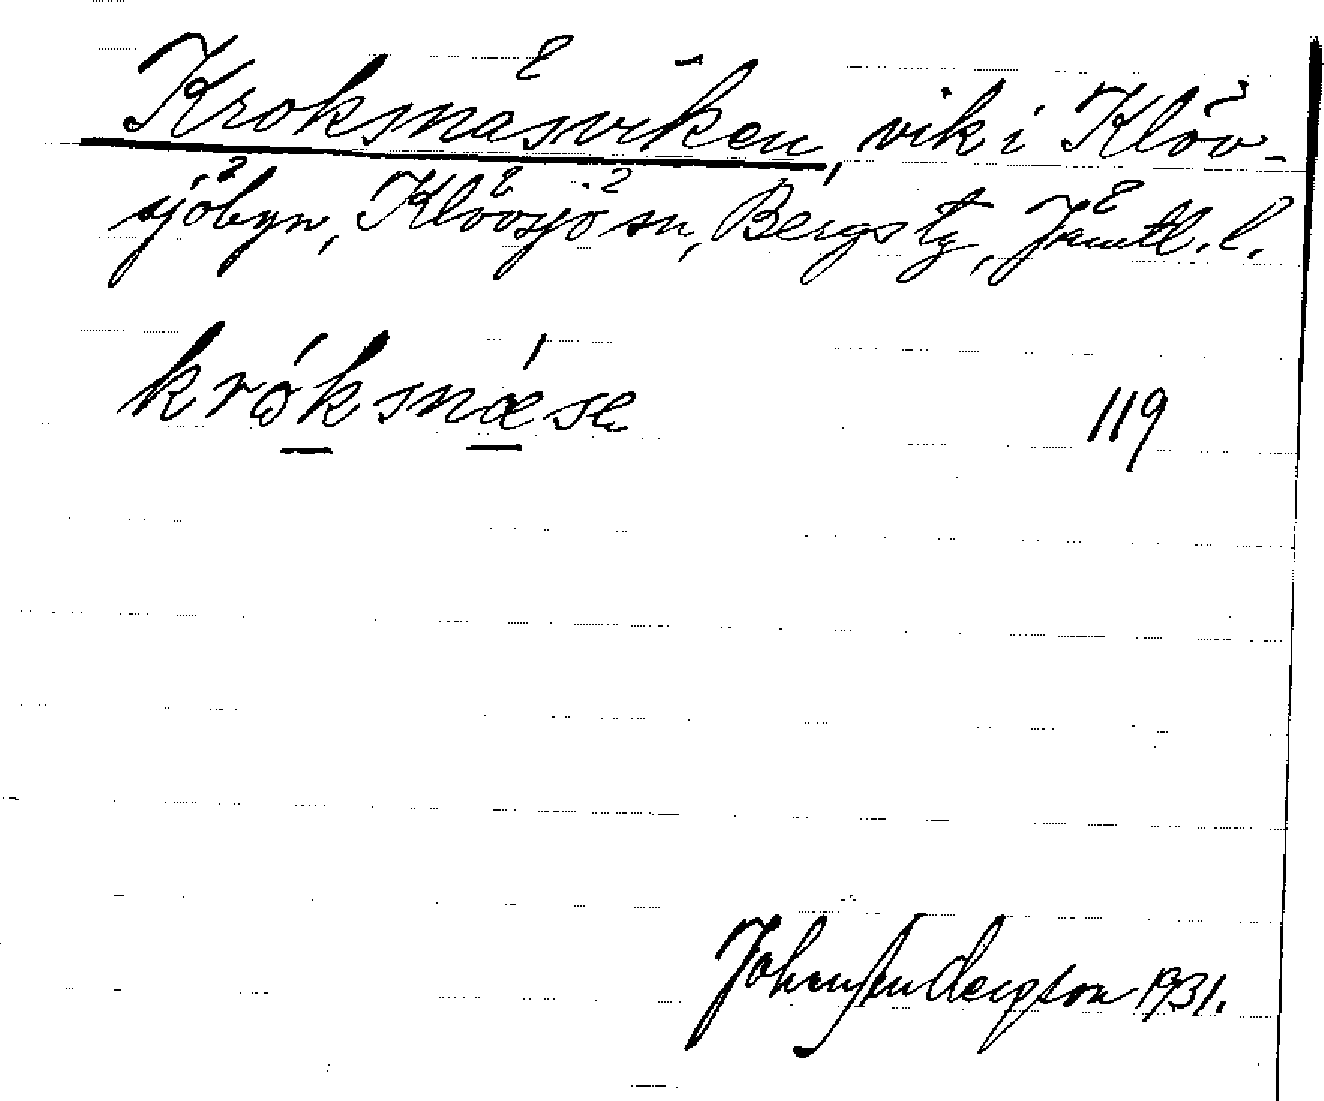 Kroksnäsviken, vik i Klöv-
sjöbyn, Klövsjö sn, Bergs tg, Jämtl. l.
króksnǽse
119
John Andersson 1931.